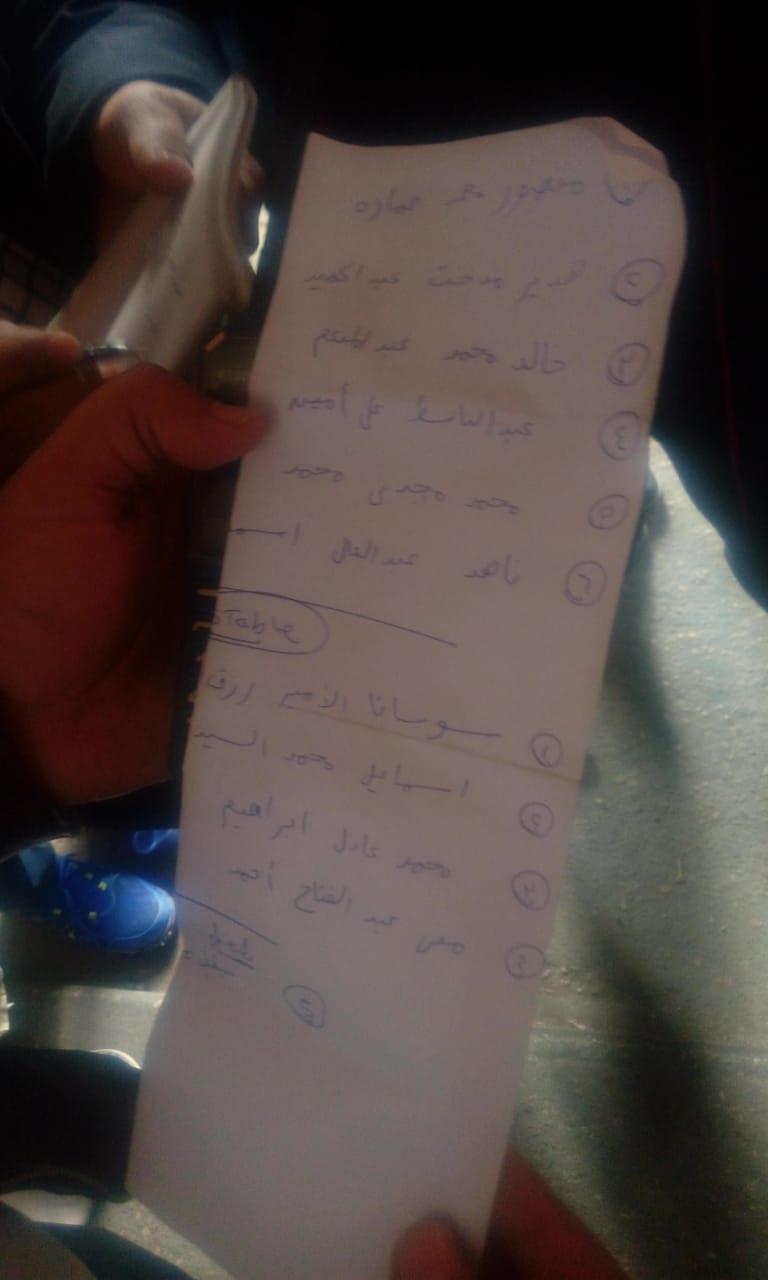 ① منصور محمد عماره
② هدير مدحت عبد الحميد
③ خالد محمد عبد المنعم
④ عبد الباسط علي أمين
⑤ محمد مجدى محمد
⑥ ناهد عبد العال
Table
① سوسانا الأمير رزق
② اسمايل محمد السيد
③ محمد عادل ابراهيم
④ منى عبد الفتاح أحمد
⑤